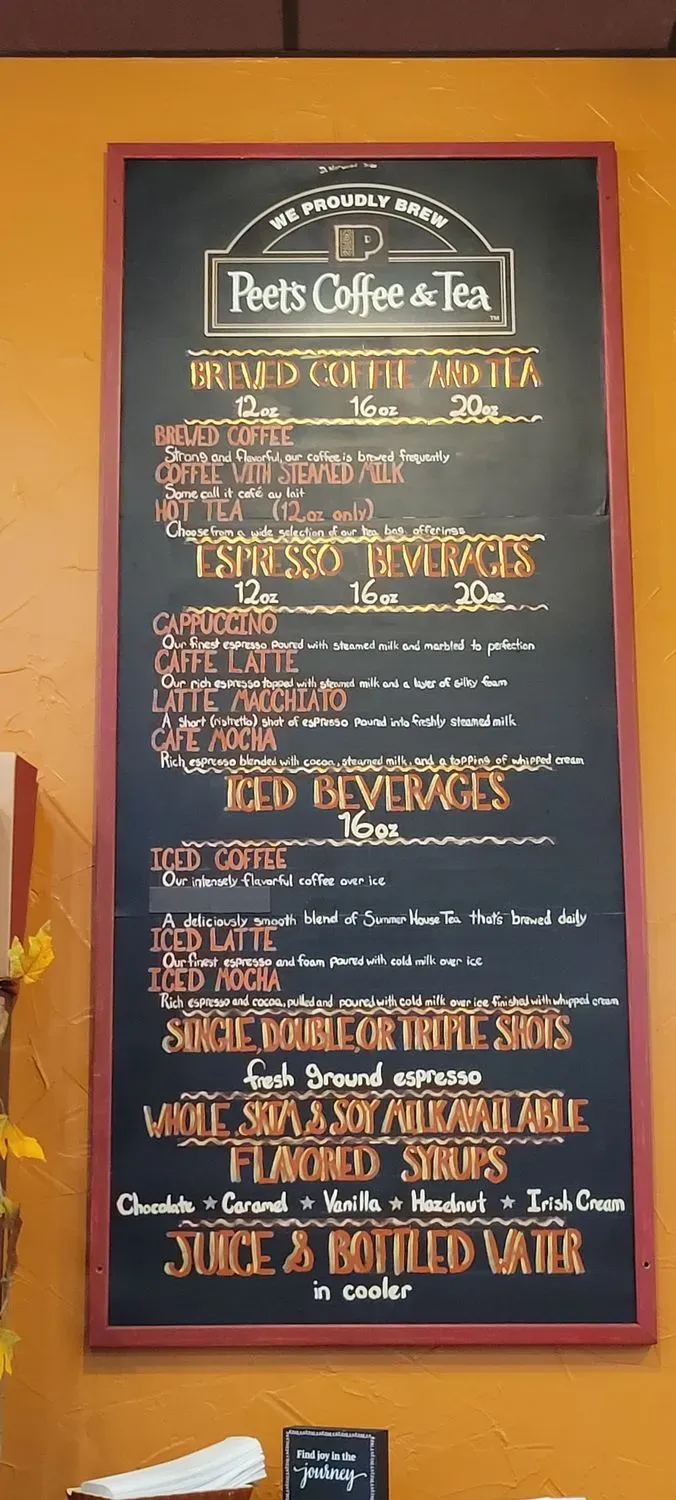 WE PROUDLY BREW
Peet's Coffee & Tea
TM
BREWED COFFEE AND TEA
12oz 16oz 20oz
BREWED COFFEE
Strong and flavorful, our coffee is brewed frequently
COFFEE WITH STEAMED MILK
Some call it café au lait
HOT TEA (12oz only)
Choose from a wide selection of our tea bag offerings
ESPRESSO BEVERAGES
12oz 16oz 20oz
CAPPUCCINO
Our finest espresso poured with steamed milk and marbled to perfection
CAFFE LATTE
Our rich espresso topped with steamed milk and a layer of silky foam
LATTE MACCHIATO
A short (ristretto) shot of espresso poured into freshly steamed milk
CAFE MOCHA
Rich espresso blended with cocoa, steamed milk, and a topping of whipped cream
ICED BEVERAGES
16oz
ICED COFFEE
Our intensely flavorful coffee over ice
A deliciously smooth blend of Summer House Tea that's brewed daily
ICED LATTE
Our finest espresso and foam poured with cold milk over ice
ICED MOCHA
Rich espresso and cocoa, pulled and poured with cold milk over ice finished with whipped cream
SINGLE, DOUBLE, OR TRIPLE SHOTS
fresh ground espresso
WHOLE, SKIM, & SOY MILK AVAILABLE
FLAVORED SYRUPS
Chocolate ★ Caramel ★ Vanilla ★ Hazelnut ★ Irish Cream
JUICE & BOTTLED WATER
in cooler
Find joy in the
journey